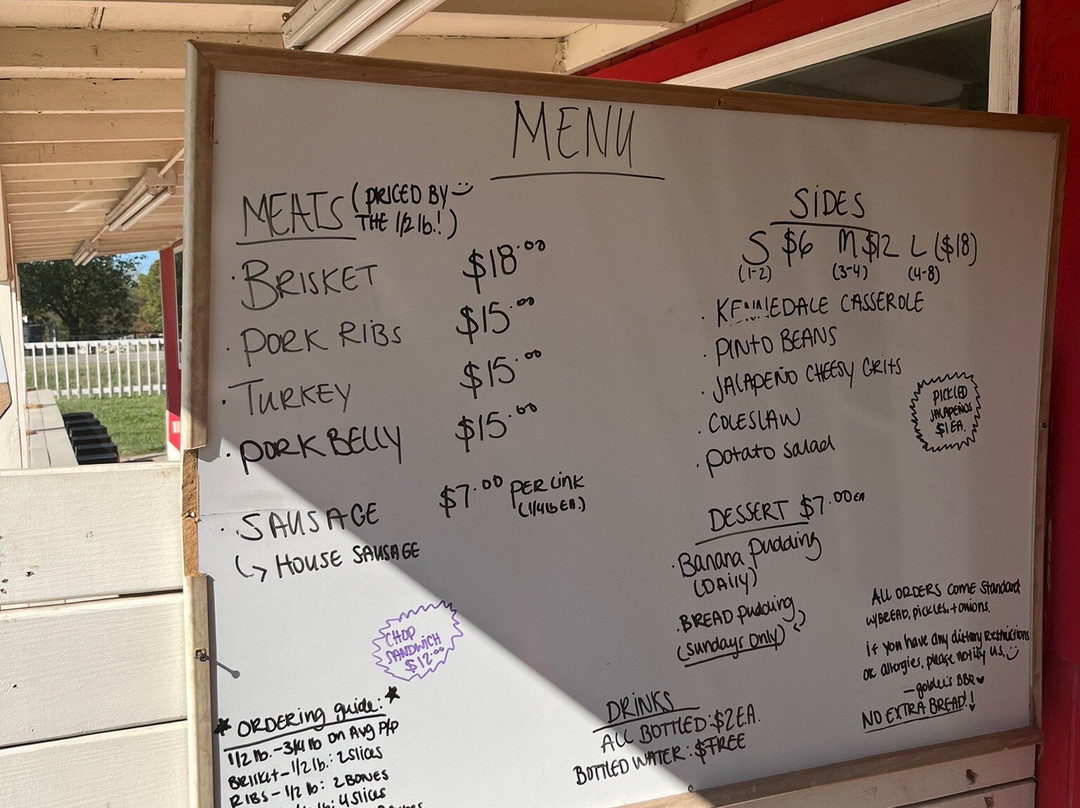 MENU
MEATS (PRICED BY
THE 1/2 lb.!)
· BRISKET $18.00
· PORK RIBS $15.00
· TURKEY $15.00
· PORK BELLY $15.00
· SAUSAGE $7.00 PER LINK
(1/4 lb EA.)
↳ HOUSE SAUSAGE
CHOP
SANDWICH
$12.00
* ORDERING guide: *
1/2 lb. - 3/4 lb on Avg P/P
Brisket - 1/2 lb: 2 Slices
RIBS - 1/2 lb: 2 BONES
4 Slices
SIDES
S $6 M $12 L ($18)
(1-2) (3-4) (4-8)
· KENNEDALE CASSEROLE
· PINTO BEANS
· JALAPEÑO CHEESY GRITS
· COLESLAW
· Potato Salad
PICKLED
JALAPEÑOS
$1 EA.
DESSERT $7.00 EA
· Banana Pudding
(DAILY)
· BREAD Pudding
(Sundays Only)
DRINKS
ALL BOTTLED: $2 EA.
BOTTLED WATER: $FREE
ALL ORDERS COME Standard
W/BREAD, PICKLES, + ONIONS.
If you have any dietary restrictions
OR allergies, please notify us.
— goldee's BBQ
NO EXTRA BREAD!!